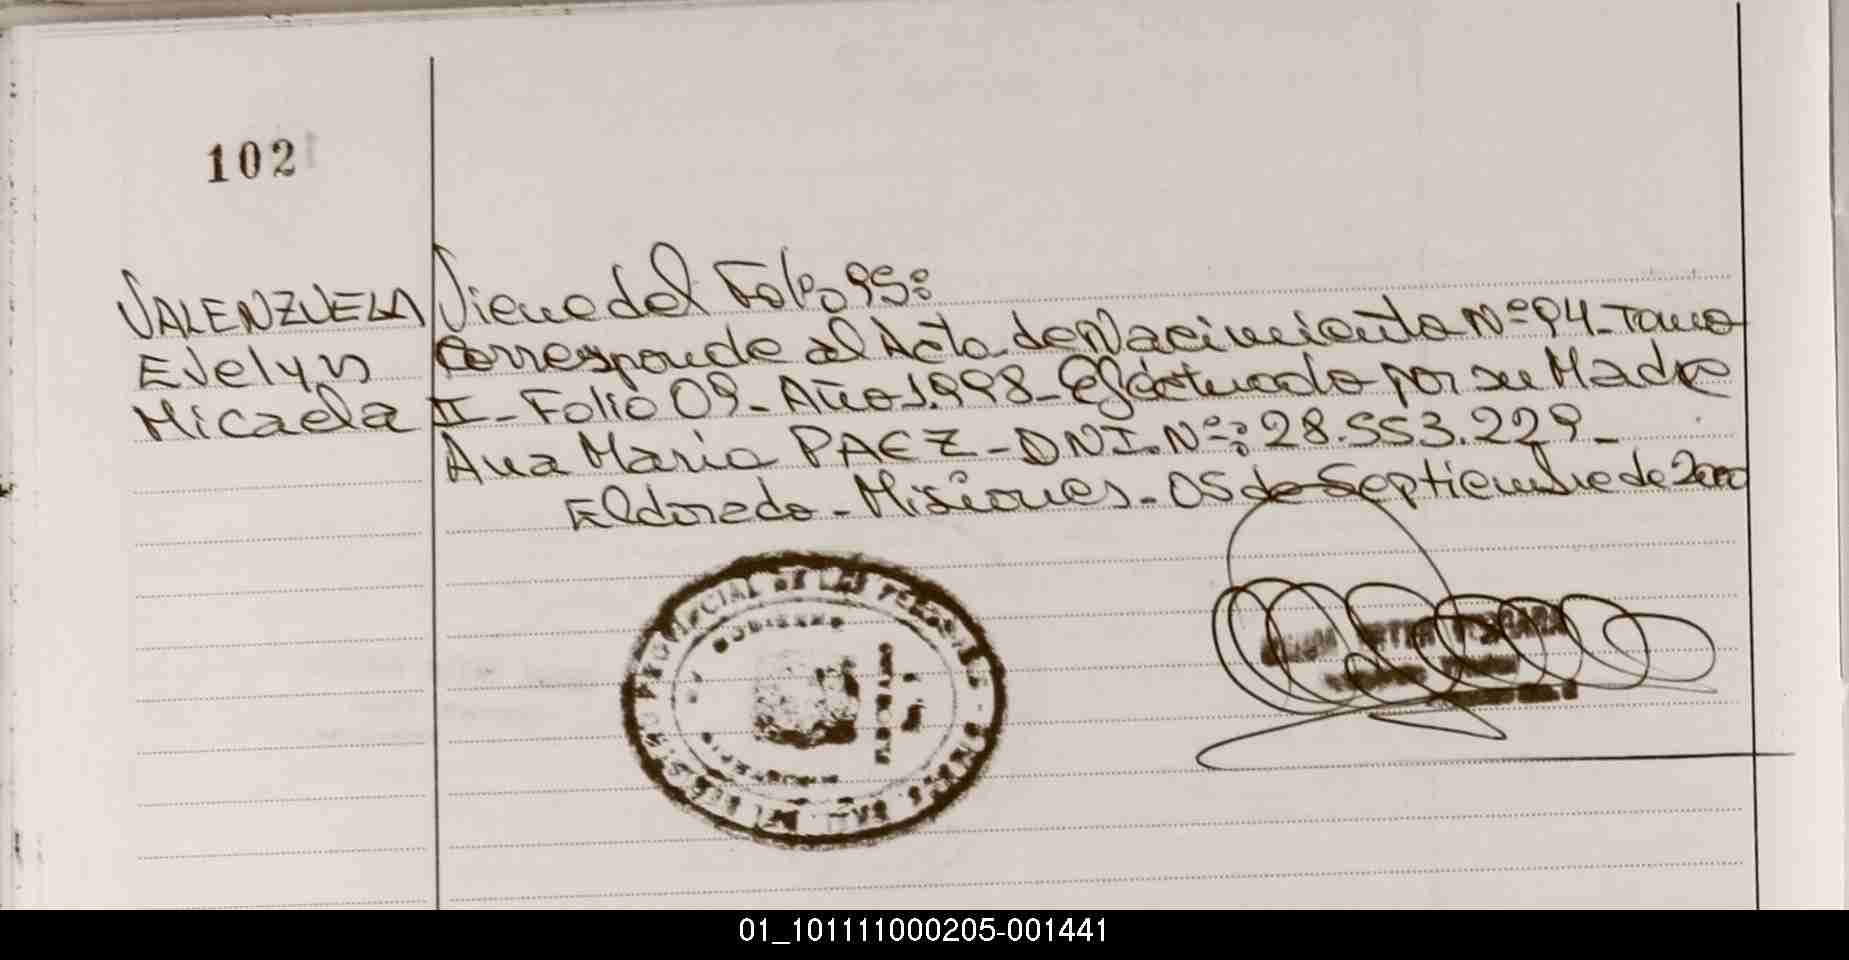 102
VALENZUELA
Evelyn
Micaela
Viene del Folio 95:
Corresponde al Acta de Nacimiento Nº 94- Tomo
II- Folio 09- Año 1.998- Efectuado por su Madre
Ana Maria PAEZ - DNI. Nº: 28.553.229-
Eldorado - Misiones - 05 de Septiembre de 2000
PROVINCIAL DE LAS PERSONAS
GOBIERNO
ELDORADO
01_101111000205-001441